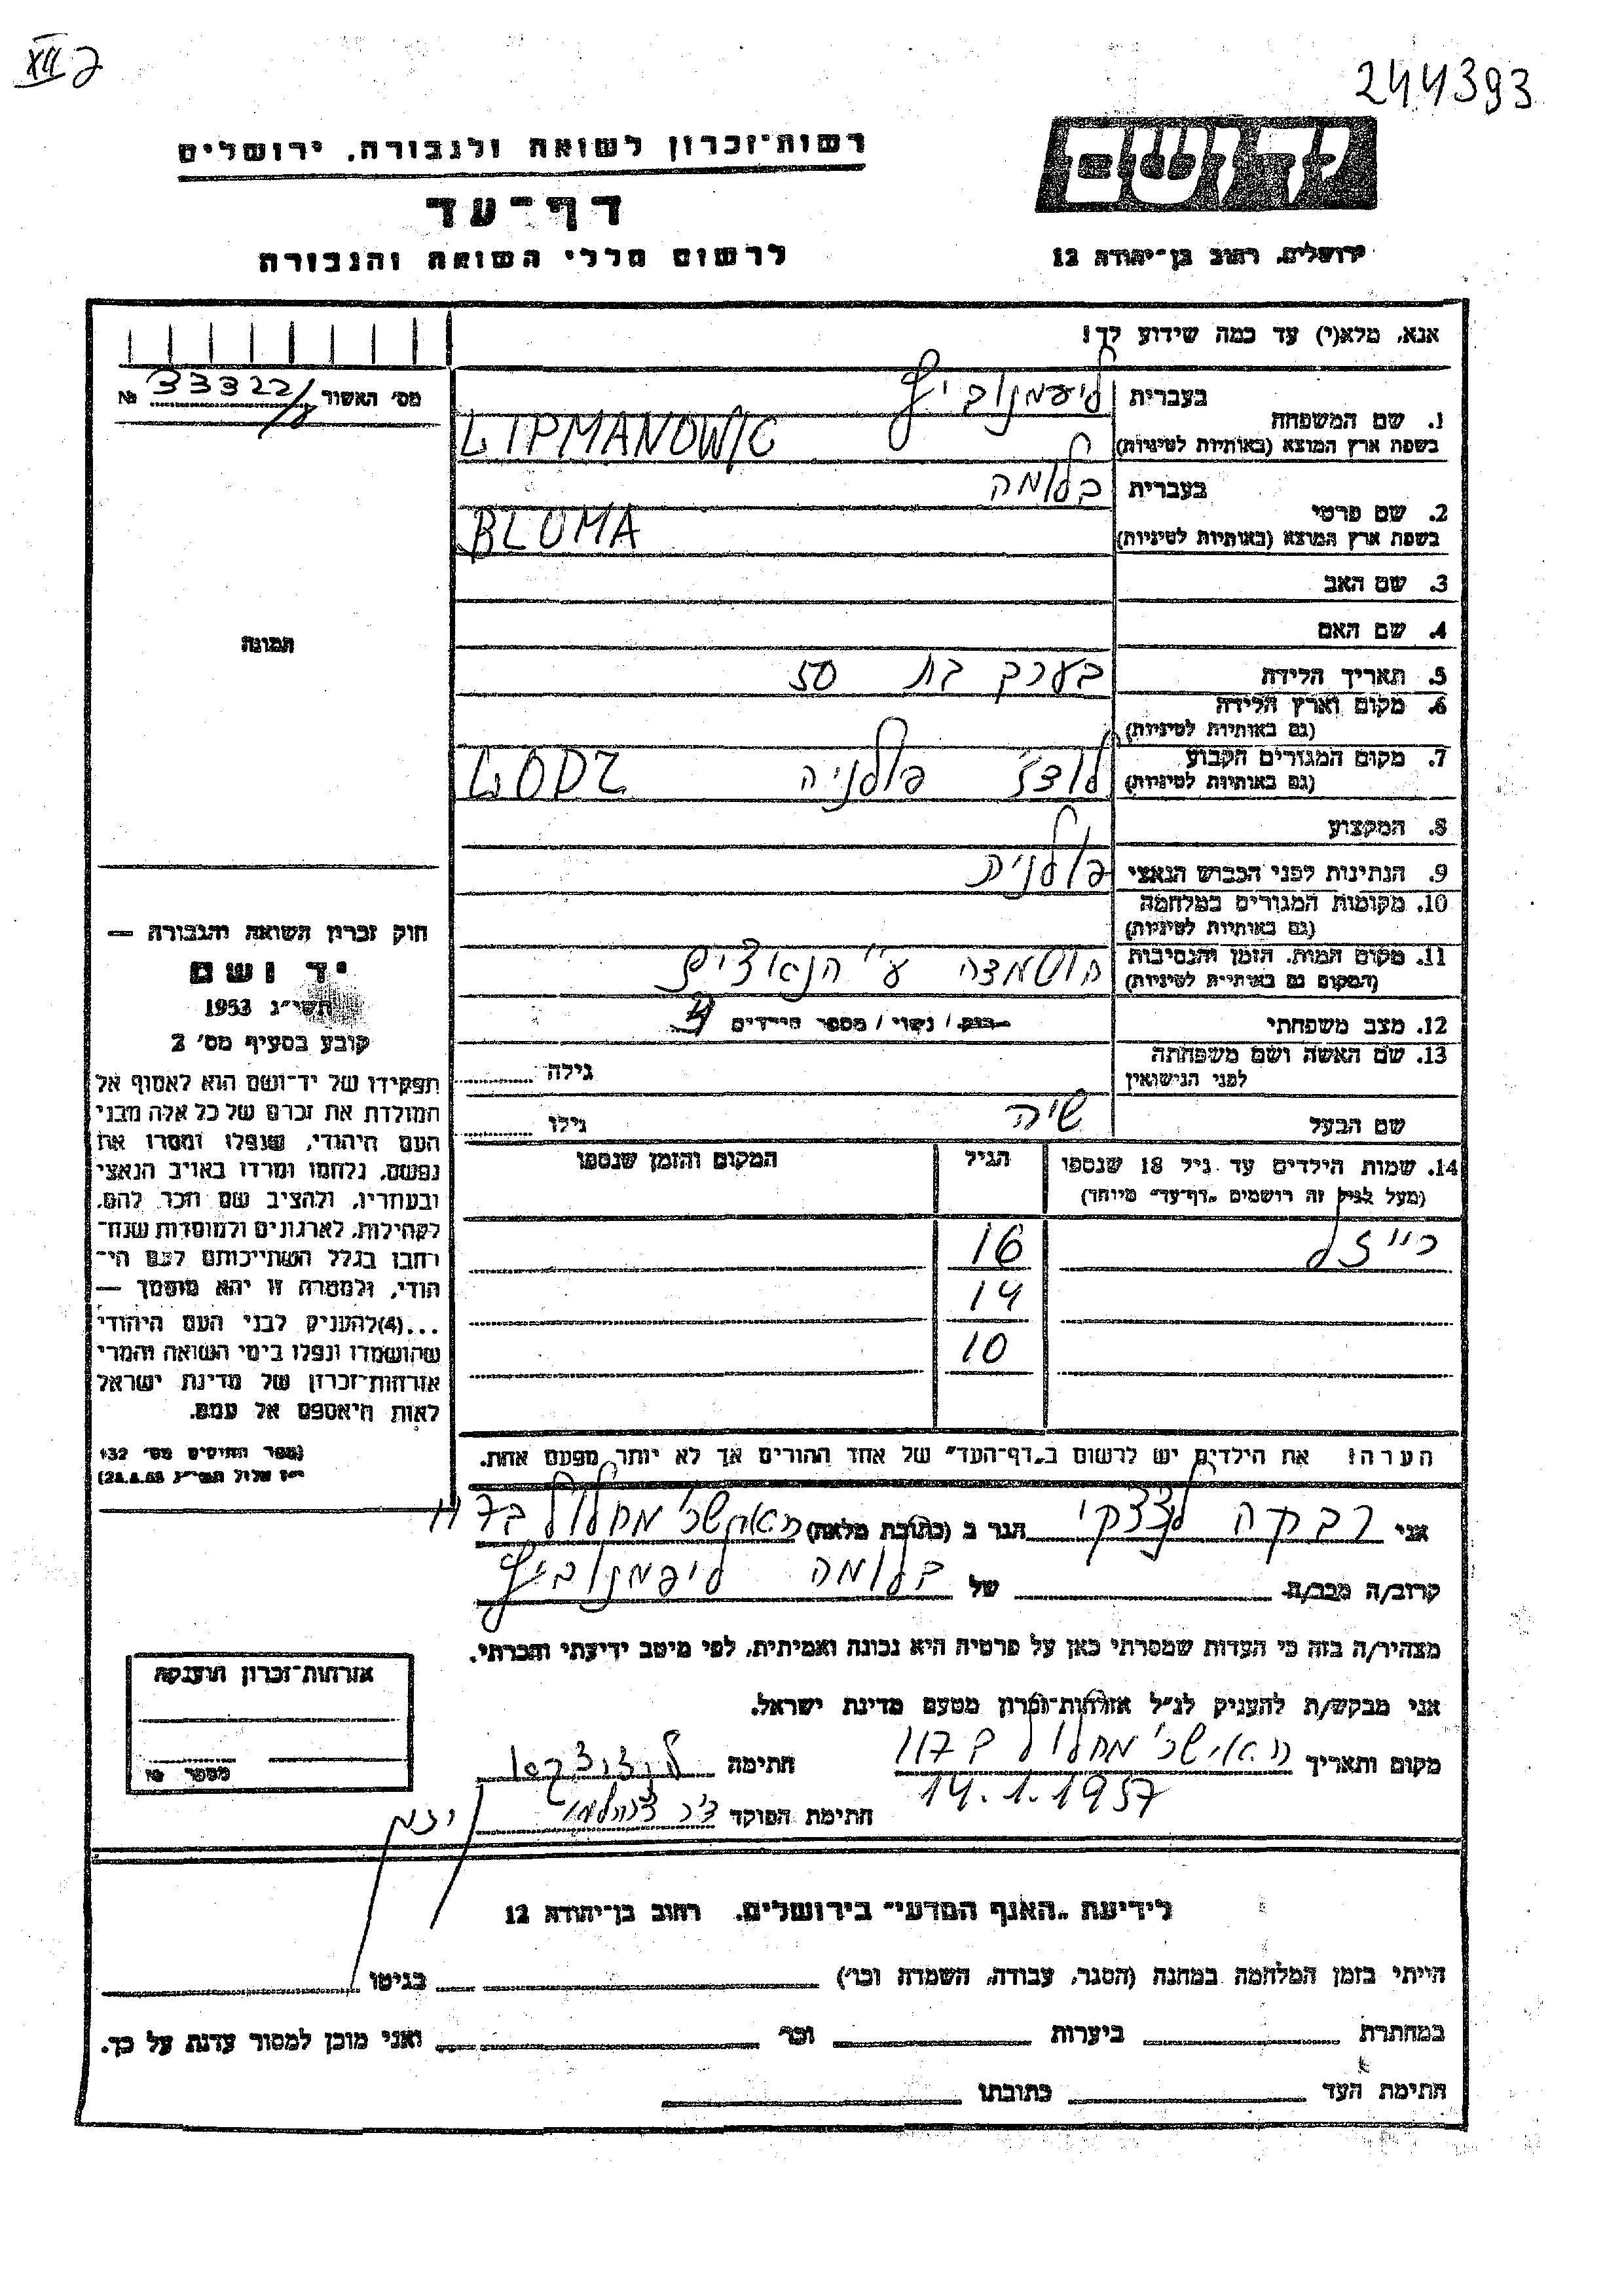 XII 2
244393
יד ושם
ירושלים, רחוב בן־יהודה 12
רשות־זכרון לשואה ולגבורה, ירושלים
דף־עד
לרשום חללי השואה והגבורה
אנא, מלא(י) עד כמה שידוע לך!
מס' האשור 33322 №
1. שם המשפחה
בעברית ליפמנוביץ
בשפת ארץ המוצא (באותיות לטיניות) LIPMANOWIC
2. שם פרטי
בעברית בלומה
בשפת ארץ המוצא (באותיות לטיניות) BLUMA
3. שם האב
4. שם האם
תמונה
5. תאריך הלידה בערך בת 50
6. מקום וארץ הלידה
(גם באותיות לטיניות)
7. מקום המגורים הקבוע לודז' פולניה LODZ
(גם באותיות לטיניות)
8. המקצוע
9. הנתינות לפני הכבוש הנאצי פולנית
10. מקומות המגורים במלחמה
(גם באותיות לטיניות)
11. מקום המות, הזמן והנסיבות הושמדה ע"י הנאצים
(המקום גם באותיות לטיניות)
12. מצב משפחתי רווק / נשוי / מספר הילדים
13. שם האשה ושם משפחתה
לפני הנישואין
גילה
שם הבעל שיה גילו
14. שמות הילדים עד גיל 18 שנספו הגיל המקום והזמן שנספו
(מעל לגיל זה רושמים "דף־עד" מיוחד)
רייזל 16
14
10
הערה! את הילדים יש לרשום ב"דף־העד" של אחד ההורים אך לא יותר מפעם אחת.
חוק זכרון השואה והגבורה —
יד ושם
תשי"ג 1953
קובע בסעיף מס' 2
תפקידו של יד־ושם הוא לאסוף אל
המולדת את זכרם של כל אלה מבני
העם היהודי, שנפלו ומסרו את
נפשם, נלחמו ומרדו באויב הנאצי
ובעוזריו, ולהציב שם וזכר להם,
לקהילות, לארגונים ולמוסדות שנח־
רבו בגלל השתייכותם לעם הי־
הודי, ולמטרה זו יהא מוסמך —
...(4) להעניק לבני העם היהודי
שהושמדו ונפלו בימי השואה והמרי
אזרחות־זכרון של מדינת ישראל
לאות היאספם אל עמם.
(ספר החוקים מס' 132
אני רבקה הגר ב (כתובת מלאה)
קרוב/ה מכר/ה של בלומה ליפמנוביץ
מצהיר/ה בזה כי העדות שמסרתי כאן על פרטיה היא נכונה ואמיתית, לפי מיטב ידיעתי והכרתי.
אני מבקש/ת להעניק לנ"ל אזרחות־זכרון מטעם מדינת ישראל.
מקום ותאריך 14.1.1957 חתימה
חתימת הפוקד
אזרחות־זכרון הוענקה
מספר №
לידיעת "האגף המדעי" בירושלים, רחוב בן־יהודה 12
הייתי בזמן המלחמה במחנה (הסגר, עבודה, השמדה וכו') בגיטו
במחתרת ביערות וכו' ואני מוכן למסור עדות על כך.
חתימת העד כתובתו